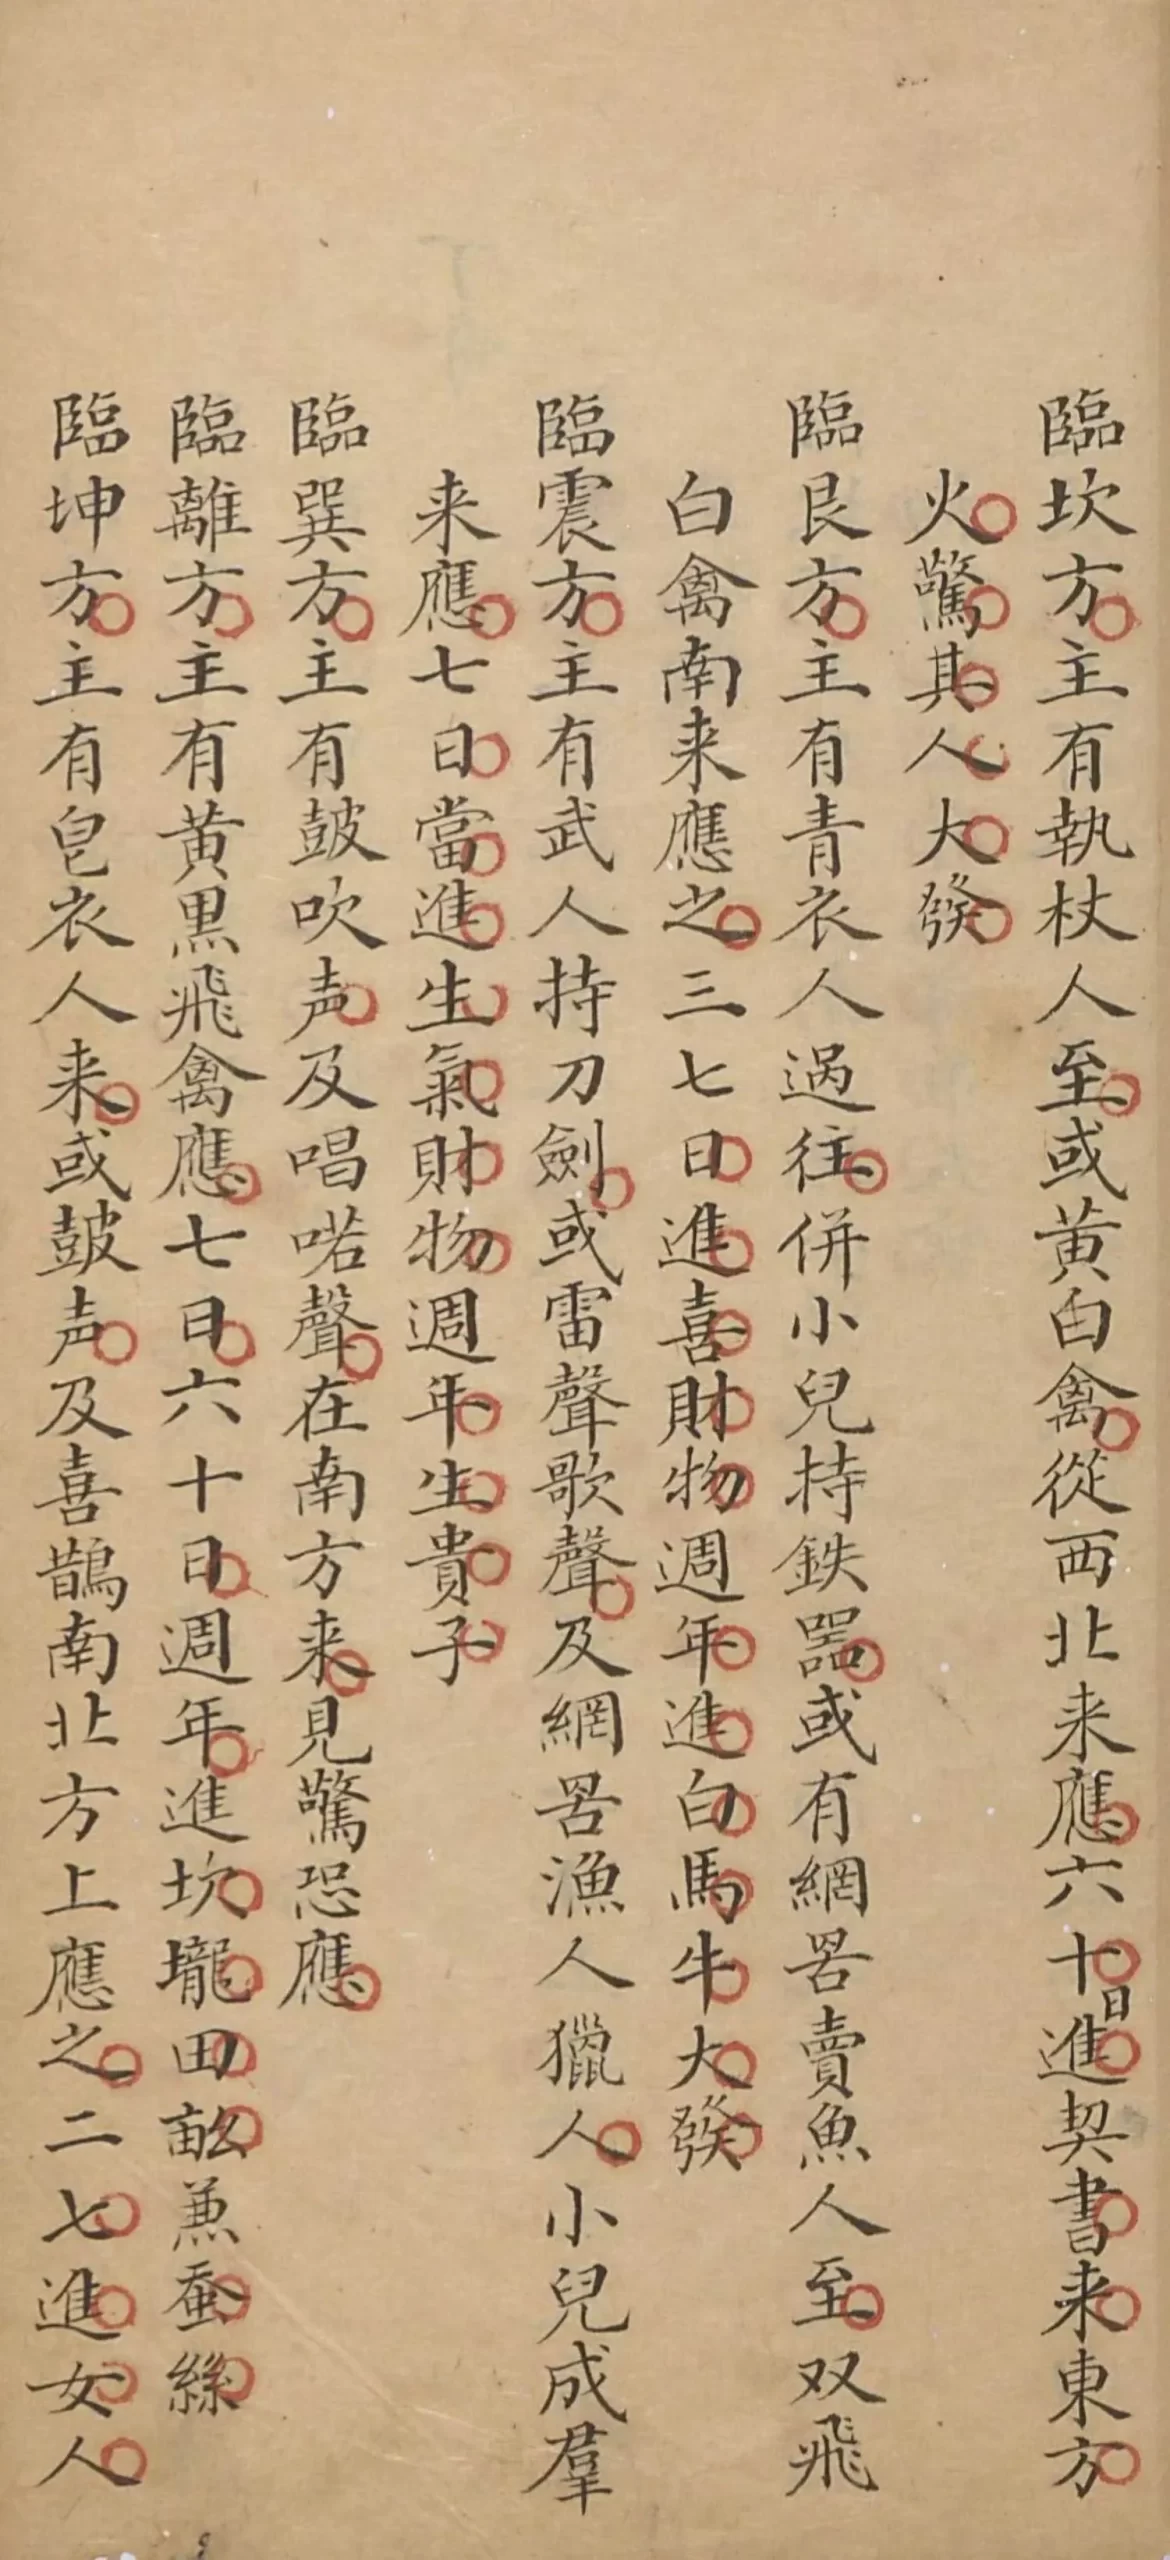 臨坎方主有執杖人至或黃白禽從西北来應六十日進契書来東方
火驚其人大發
臨艮方主有青衣人過往併小兒持鉄器或有網罟賣魚人至双飛
白禽南来應之三七日進喜財物週年進白馬牛大發
臨震方主有武人持刀劍或雷聲歌聲及網罟漁人獵人小兒成羣
来應七日當進生氣財物週年生貴子
臨巽方主有皷吹声及唱喏聲在南方来見驚恐應
臨離方主有黃黒飛禽應七日六十日週年進坎壠田畝兼蚕絲
臨坤方主有皂衣人来或皷声及喜鵲南北方上應之二七進女人